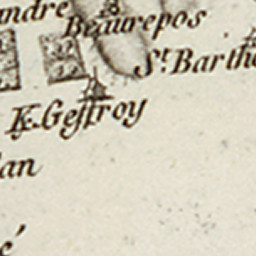 andre
Beaurepos
St. Barthe
K. Geffroy
lan
é